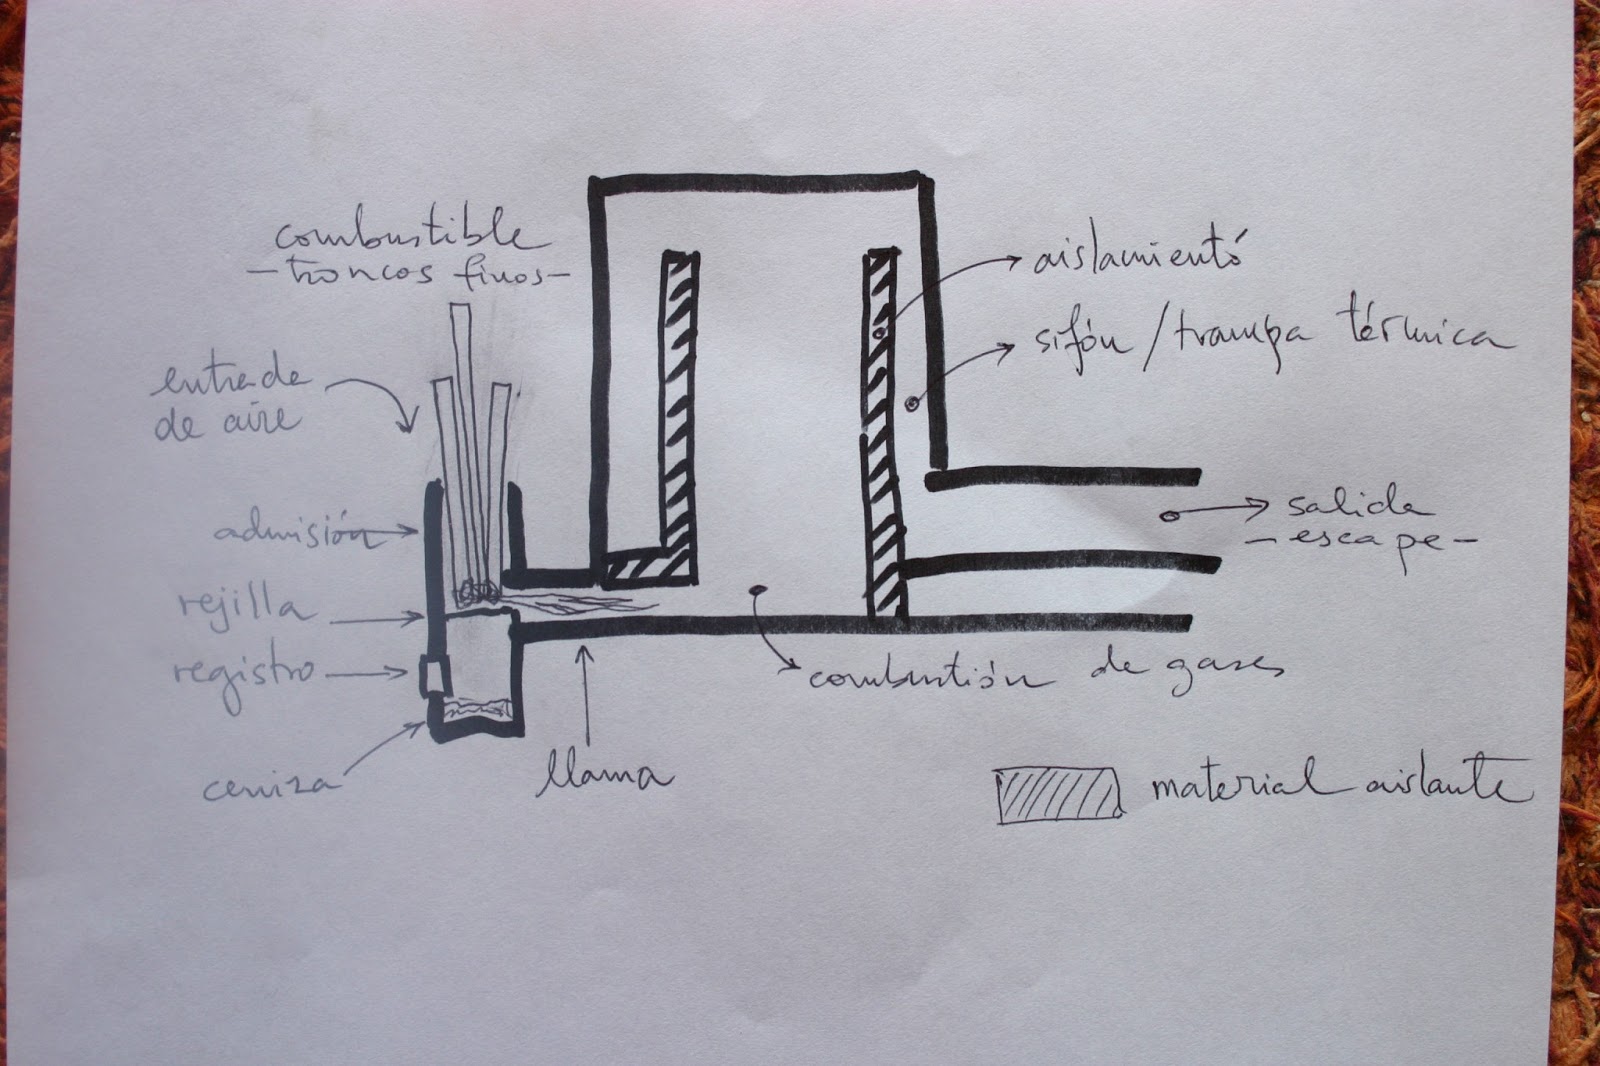 combustible
- troncos finos -
entrada
de aire
admisión
rejilla
registro
ceniza
llama
aislamientó
sifón / trampa térmica
salida
- escape -
combustión de gases
material aislante